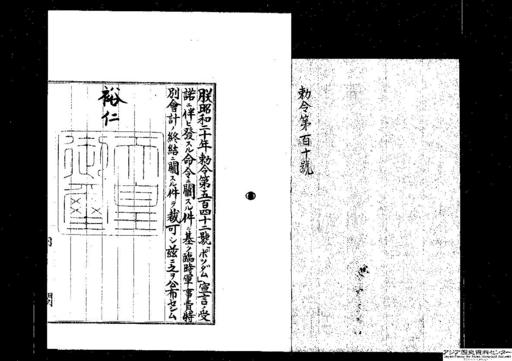 勅令第百十號
朕昭和二十年勅令第五百四十二號「ポツダム」宣言ノ受
諾ニ伴ヒ發スル命令ニ關スル件ニ基ク臨時軍事費特
別會計ノ終結ニ關スル件ヲ裁可シ茲ニ之ヲ公布セシム
裕仁
天皇御璽
アジア歴史資料センター